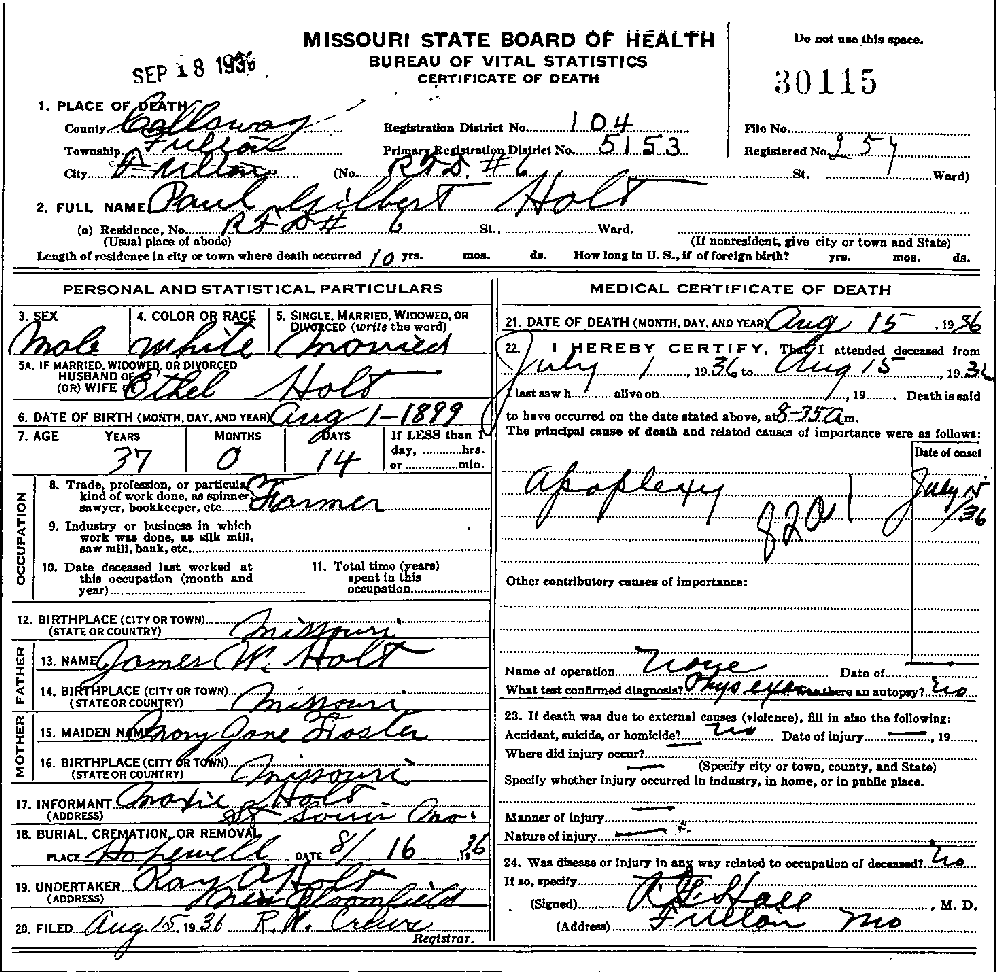 MISSOURI STATE BOARD OF HEALTH
BUREAU OF VITAL STATISTICS
CERTIFICATE OF DEATH
Do not use this space.
SEP 18 1936
30115
1. PLACE OF DEATH
County Calloway Registration District No. 104 File No.
Township Fulton Primary Registration District No. 5153 Registered No. 257
City Fulton (No. RFD. #6 St. Ward)
2. FULL NAME Paul Gilbert Holt
(a) Residence, No. RFD# 6 St., Ward.
(Usual place of abode) (If nonresident, give city or town and State)
Length of residence in city or town where death occurred 10 yrs. mos. ds. How long in U. S., if of foreign birth? yrs. mos. ds.
PERSONAL AND STATISTICAL PARTICULARS
3. SEX Male
4. COLOR OR RACE White
5. SINGLE, MARRIED, WIDOWED, OR DIVORCED (write the word) Married
5A. IF MARRIED, WIDOWED, OR DIVORCED
HUSBAND OF
(OR) WIFE OF Ethel Holt
6. DATE OF BIRTH (MONTH, DAY, AND YEAR) Aug 1-1899
7. AGE YEARS MONTHS DAYS If LESS than 1
37 0 14 day, hrs.
or min.
OCCUPATION
8. Trade, profession, or particular
kind of work done, as spinner,
sawyer, bookkeeper, etc. Farmer
9. Industry or business in which
work was done, as silk mill,
saw mill, bank, etc.
10. Date deceased last worked at
this occupation (month and
year)
11. Total time (years)
spent in this
occupation
12. BIRTHPLACE (CITY OR TOWN)
(STATE OR COUNTRY) Missouri
FATHER
13. NAME James W. Holt
14. BIRTHPLACE (CITY OR TOWN)
(STATE OR COUNTRY) Missouri
MOTHER
15. MAIDEN NAME Mary Jane Foster
16. BIRTHPLACE (CITY OR TOWN)
(STATE OR COUNTRY) Missouri
17. INFORMANT Maxie Holt
(ADDRESS) St Louis Mo.
18. BURIAL, CREMATION, OR REMOVAL
PLACE Hopewell DATE 8/ 16 1936
19. UNDERTAKER Ray Holt
(ADDRESS) New Bloomfield
20. FILED Aug 15, 1936 R. N. Crews
Registrar.
MEDICAL CERTIFICATE OF DEATH
21. DATE OF DEATH (MONTH, DAY, AND YEAR) Aug 15, 1936
22. I HEREBY CERTIFY, That I attended deceased from
July 1, 1936 to Aug 15, 1936
I last saw h alive on , 19 Death is said
to have occurred on the date stated above, at 8-35 a m.
The principal cause of death and related causes of importance were as follows:
Date of onset
Apoplexy July 15/36
82a
Other contributory causes of importance:
Name of operation None Date of
What test confirmed diagnosis? Phys exam Was there an autopsy? No
23. If death was due to external causes (violence), fill in also the following:
Accident, suicide, or homicide? No Date of injury — , 19
Where did injury occur? —
(Specify city or town, county, and State)
Specify whether injury occurred in industry, in home, or in public place.
Manner of injury —
Nature of injury —
24. Was disease or injury in any way related to occupation of deceased? No
If so, specify
(Signed) , M. D.
(Address) Fulton Mo